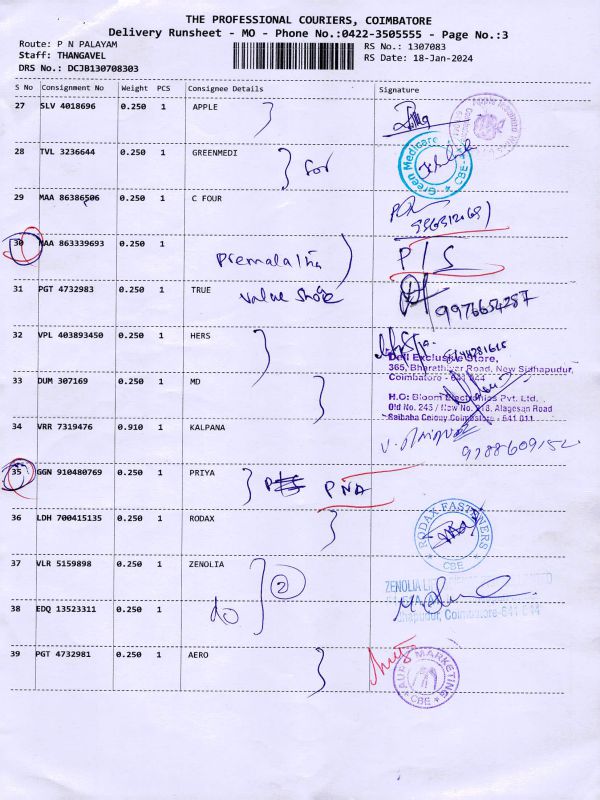 THE PROFESSIONAL COURIERS, COIMBATORE
Delivery Runsheet - MO - Phone No.:0422-3505555 - Page No.:3
Route: P N PALAYAM
RS No.: 1307083
Staff: THANGAVEL
RS Date: 18-Jan-2024
DRS No.: DCJB130708303
S No Consignment No Weight PCS Consignee Details Signature
27 SLV 4018696 0.250 1 APPLE
28 TVL 3236644 0.250 1 GREENMEDI for
Green Medicare CBE
29 MAA 86386506 0.250 1 C FOUR
30 MAA 863339693 0.250 1 P/S
31 PGT 4732983 0.250 1 TRUE
value shore
9976654287
32 VPL 403893450 0.250 1 HERS
Dell Exclusive Store,
365, Bharathiyar Road, New Sidhapudur,
Coimbatore - 641 044
33 DUM 307169 0.250 1 MD
H.O: Bloom Electronics Pvt. Ltd.
Old No. 245 / New No. 218, Alagesan Road
Saibaba Colony Coimbatore - 641 011
34 VRR 7319476 0.910 1 KALPANA
9788609152
35 GGN 910480769 0.250 1 PRIYA PNA
36 LDH 700415135 0.250 1 RODAX
RODAX FASTENERS CBE
37 VLR 5159898 0.250 1 ZENOLIA 2
ZENOLIA
38 EDQ 13523311 0.250 1 do
Coimbatore-641 044
39 PGT 4732981 0.250 1 AERO
MARKETING CBE